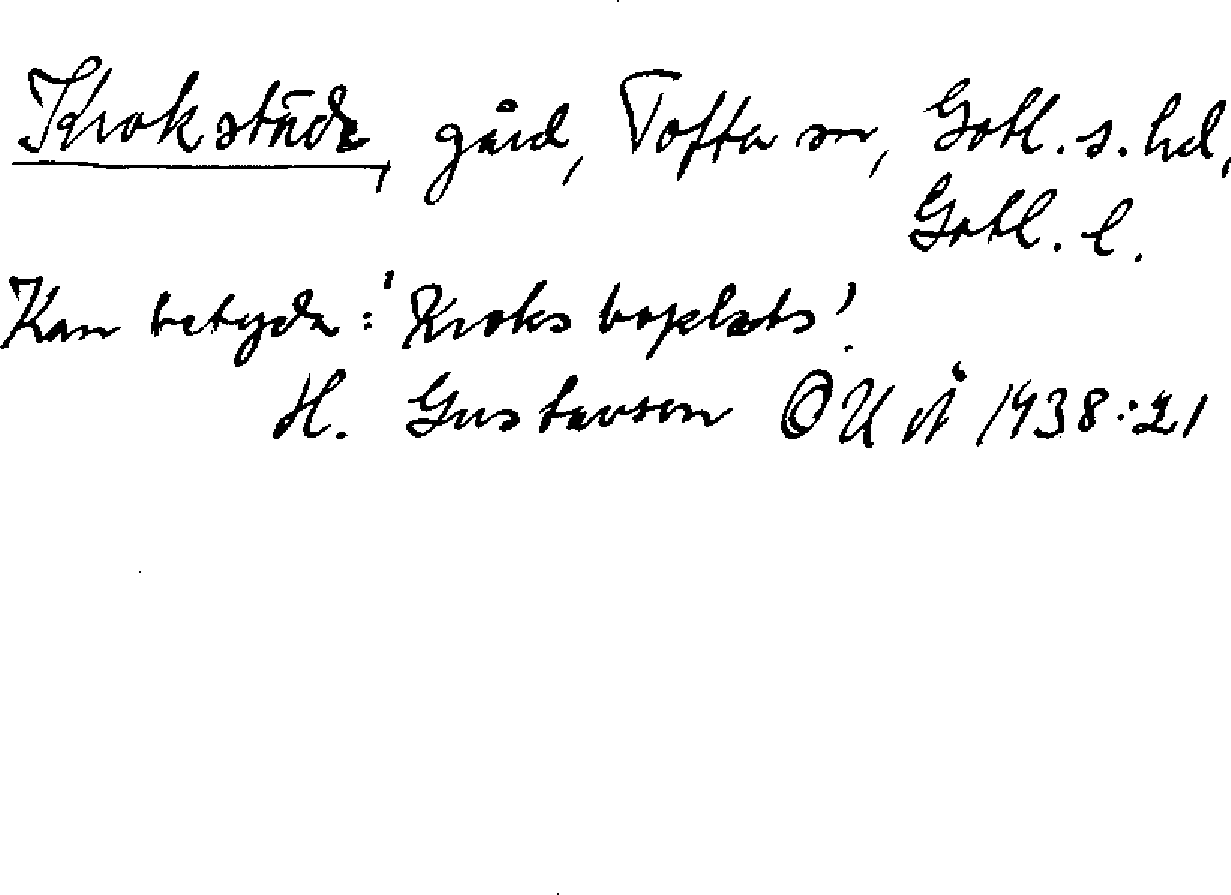 Krokstäde, gård, Tofta sn, Gotl. s. hd,
Gotl. l.
Kan betyda: 'Kroks boplats'.
H. Gustavson OUÅ 1938:21